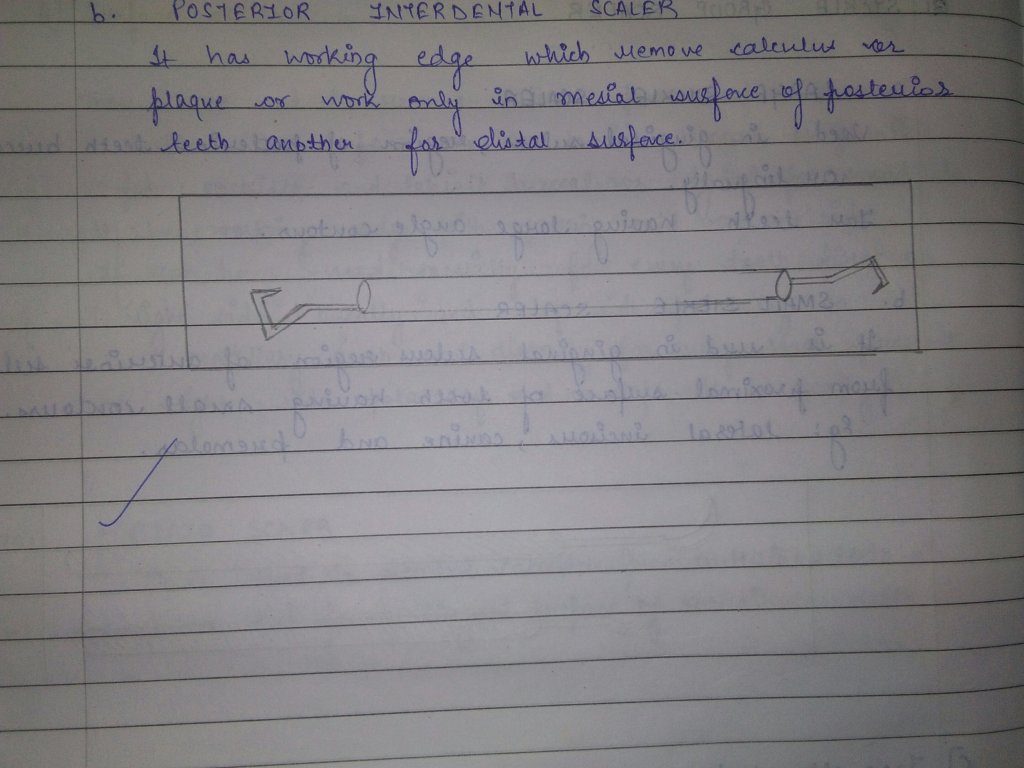 b. POSTERIOR INTERDENTAL SCALER
It has working edge which remove calculus or
plaque or work only in mesial surface of posterior
teeth another for distal surface.